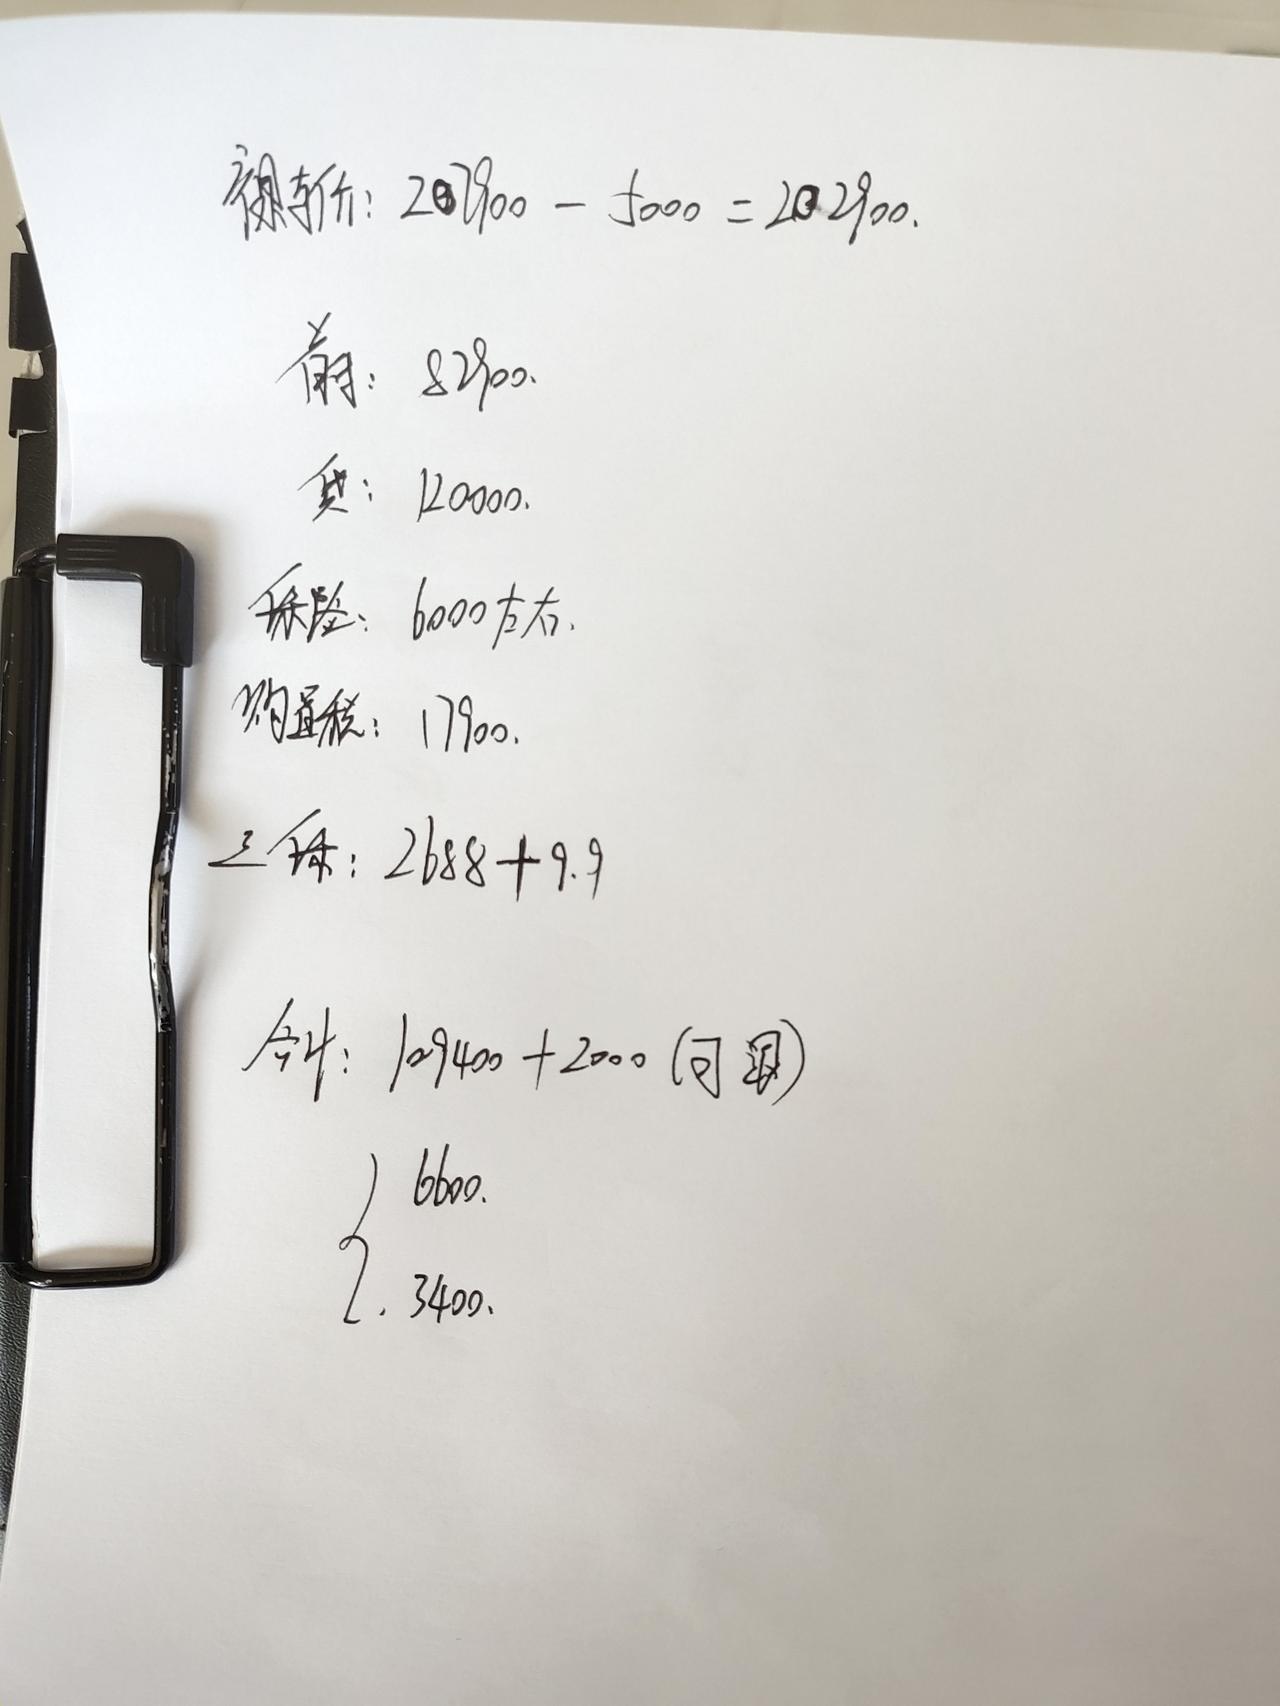 裸车价：207900 - 5000 = 202900.
首付：82900.
贷：120000.
保险：6000左右.
购置税：17900.
三保：2688+9.9
合计：109400+2000(可退)
6600.
3400.